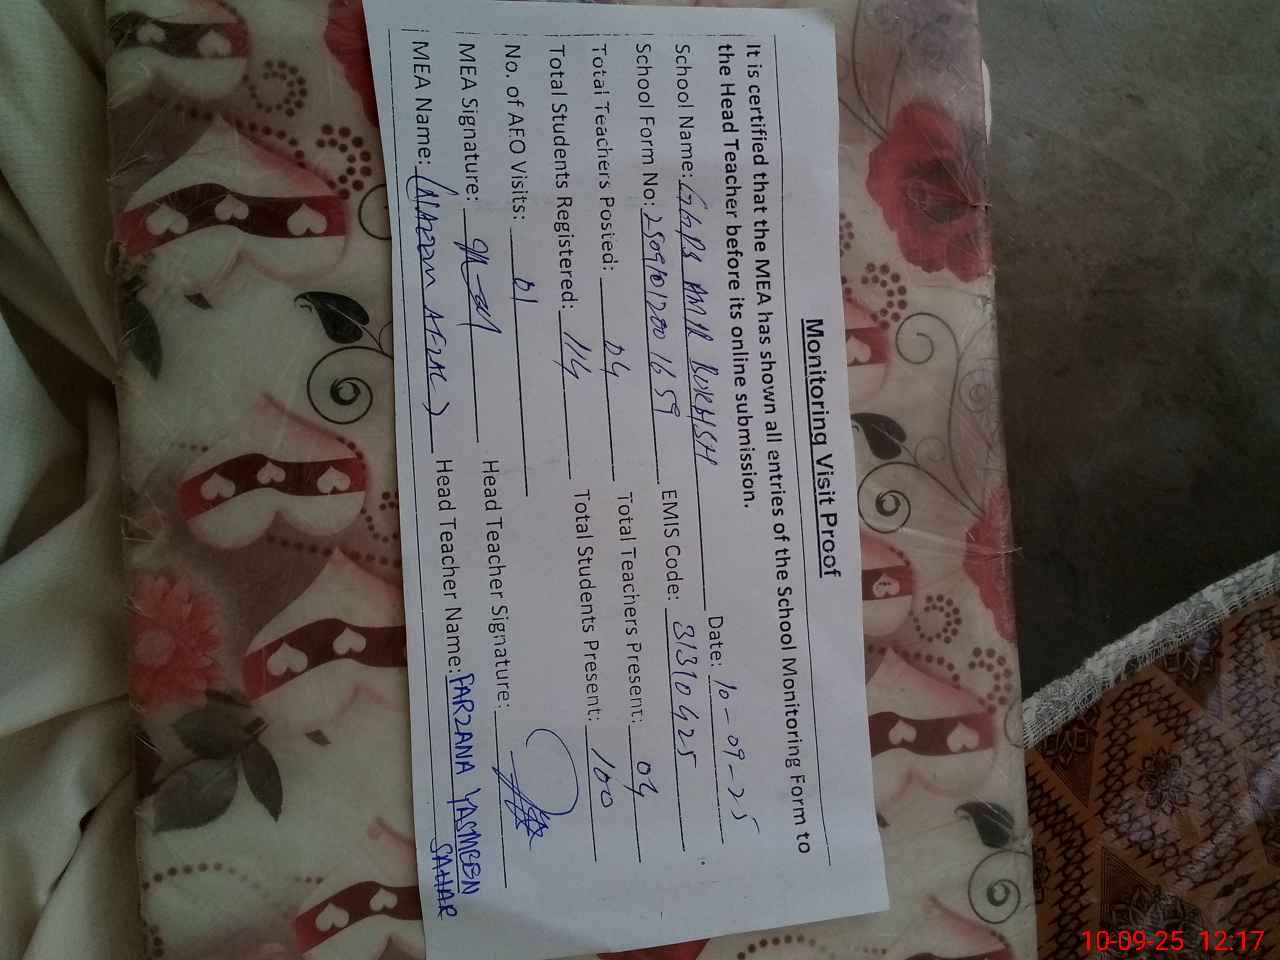 Monitoring Visit Proof
It is certified that the MEA has shown all entries of the School Monitoring Form to
the Head Teacher before its online submission.
School Name: GGPS AMIR BUKHSH Date: 10-09-25
School Form No: 25091012001659 EMIS Code: 31310425
Total Teachers Posted: 04 Total Teachers Present: 04
Total Students Registered: 114 Total Students Present: 100
No. of AEO Visits: 01
MEA Signature: Head Teacher Signature:
MEA Name: AFZAL) Head Teacher Name: FARZANA YASMEEN
SAHAR
10-09-25 12:17